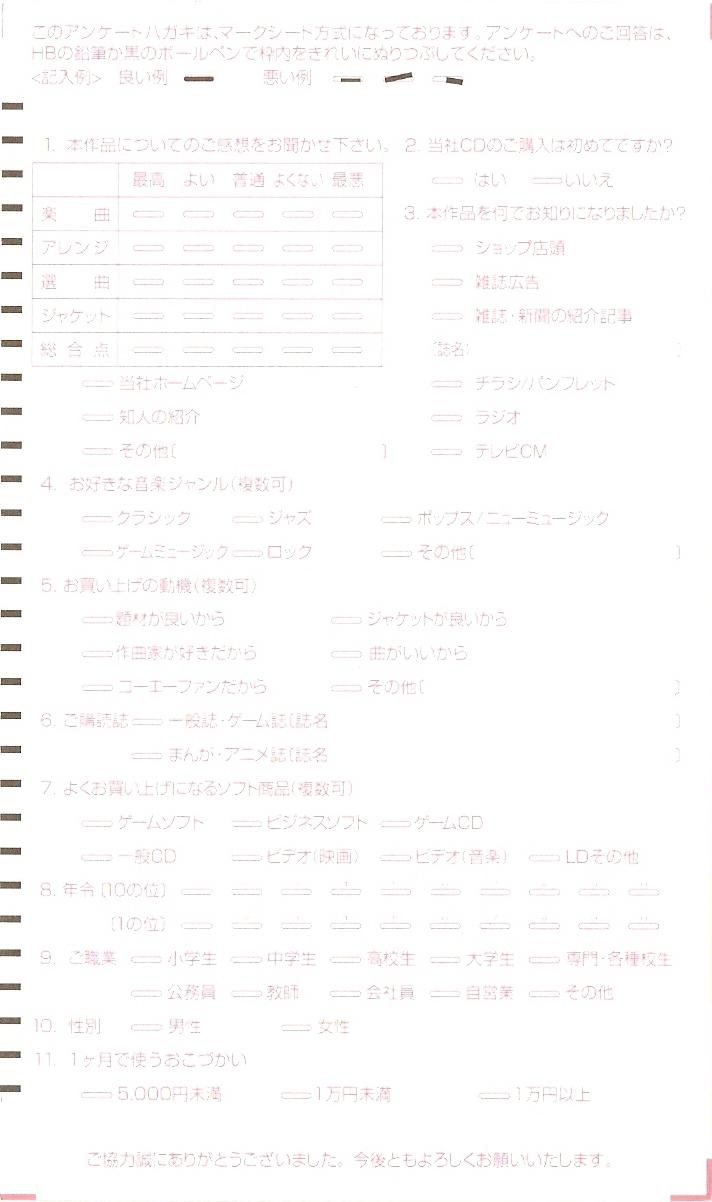 このアンケートハガキは、マークシート方式になっております。アンケートへのご回答は、
HBの鉛筆か黒のボールペンで枠内をきれいにぬりつぶしてください。
<記入例> 良い例 悪い例
1. 本作品についてのご感想をお聞かせ下さい。
最高 よい 普通 よくない 最悪
楽 曲
アレンジ
選 曲
ジャケット
総 合 点
2. 当社CDのご購入は初めてですか?
はい いいえ
3. 本作品を何でお知りになりましたか?
ショップ店頭
雑誌広告
雑誌・新聞の紹介記事
〔誌名: 〕
当社ホームページ チラシ/パンフレット
知人の紹介 ラジオ
その他〔 〕 テレビCM
4. お好きな音楽ジャンル(複数可)
クラシック ジャズ ポップス/ニューミュージック
ゲームミュージック ロック その他〔 〕
5. お買い上げの動機(複数可)
題材が良いから ジャケットが良いから
作曲家が好きだから 曲がいいから
コーエーファンだから その他〔 〕
6. ご購読誌 一般誌・ゲーム誌〔誌名 〕
まんが・アニメ誌〔誌名 〕
7. よくお買い上げになるソフト商品(複数可)
ゲームソフト ビジネスソフト ゲームCD
一般CD ビデオ(映画) ビデオ(音楽) LDその他
8. 年令〔10の位〕
〔1の位〕
9. ご職業 小学生 中学生 高校生 大学生 専門・各種校生
公務員 教師 会社員 自営業 その他
10. 性別 男性 女性
11. 1ヶ月で使うおこづかい
5,000円未満 1万円未満 1万円以上
ご協力誠にありがとうございました。今後ともよろしくお願いいたします。